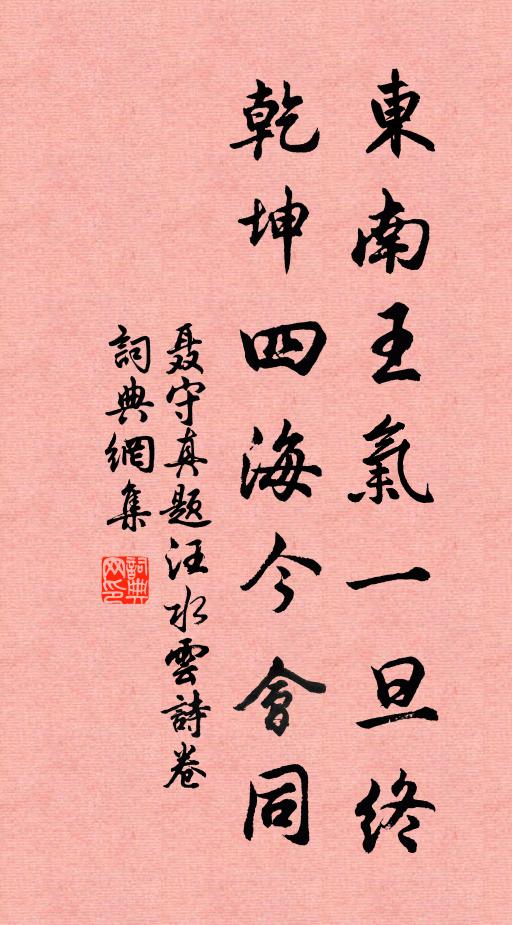 東南王氣一旦終
乾坤四海今會同
聶守真題汪水雲詩卷
詞典網集
詞典
网印